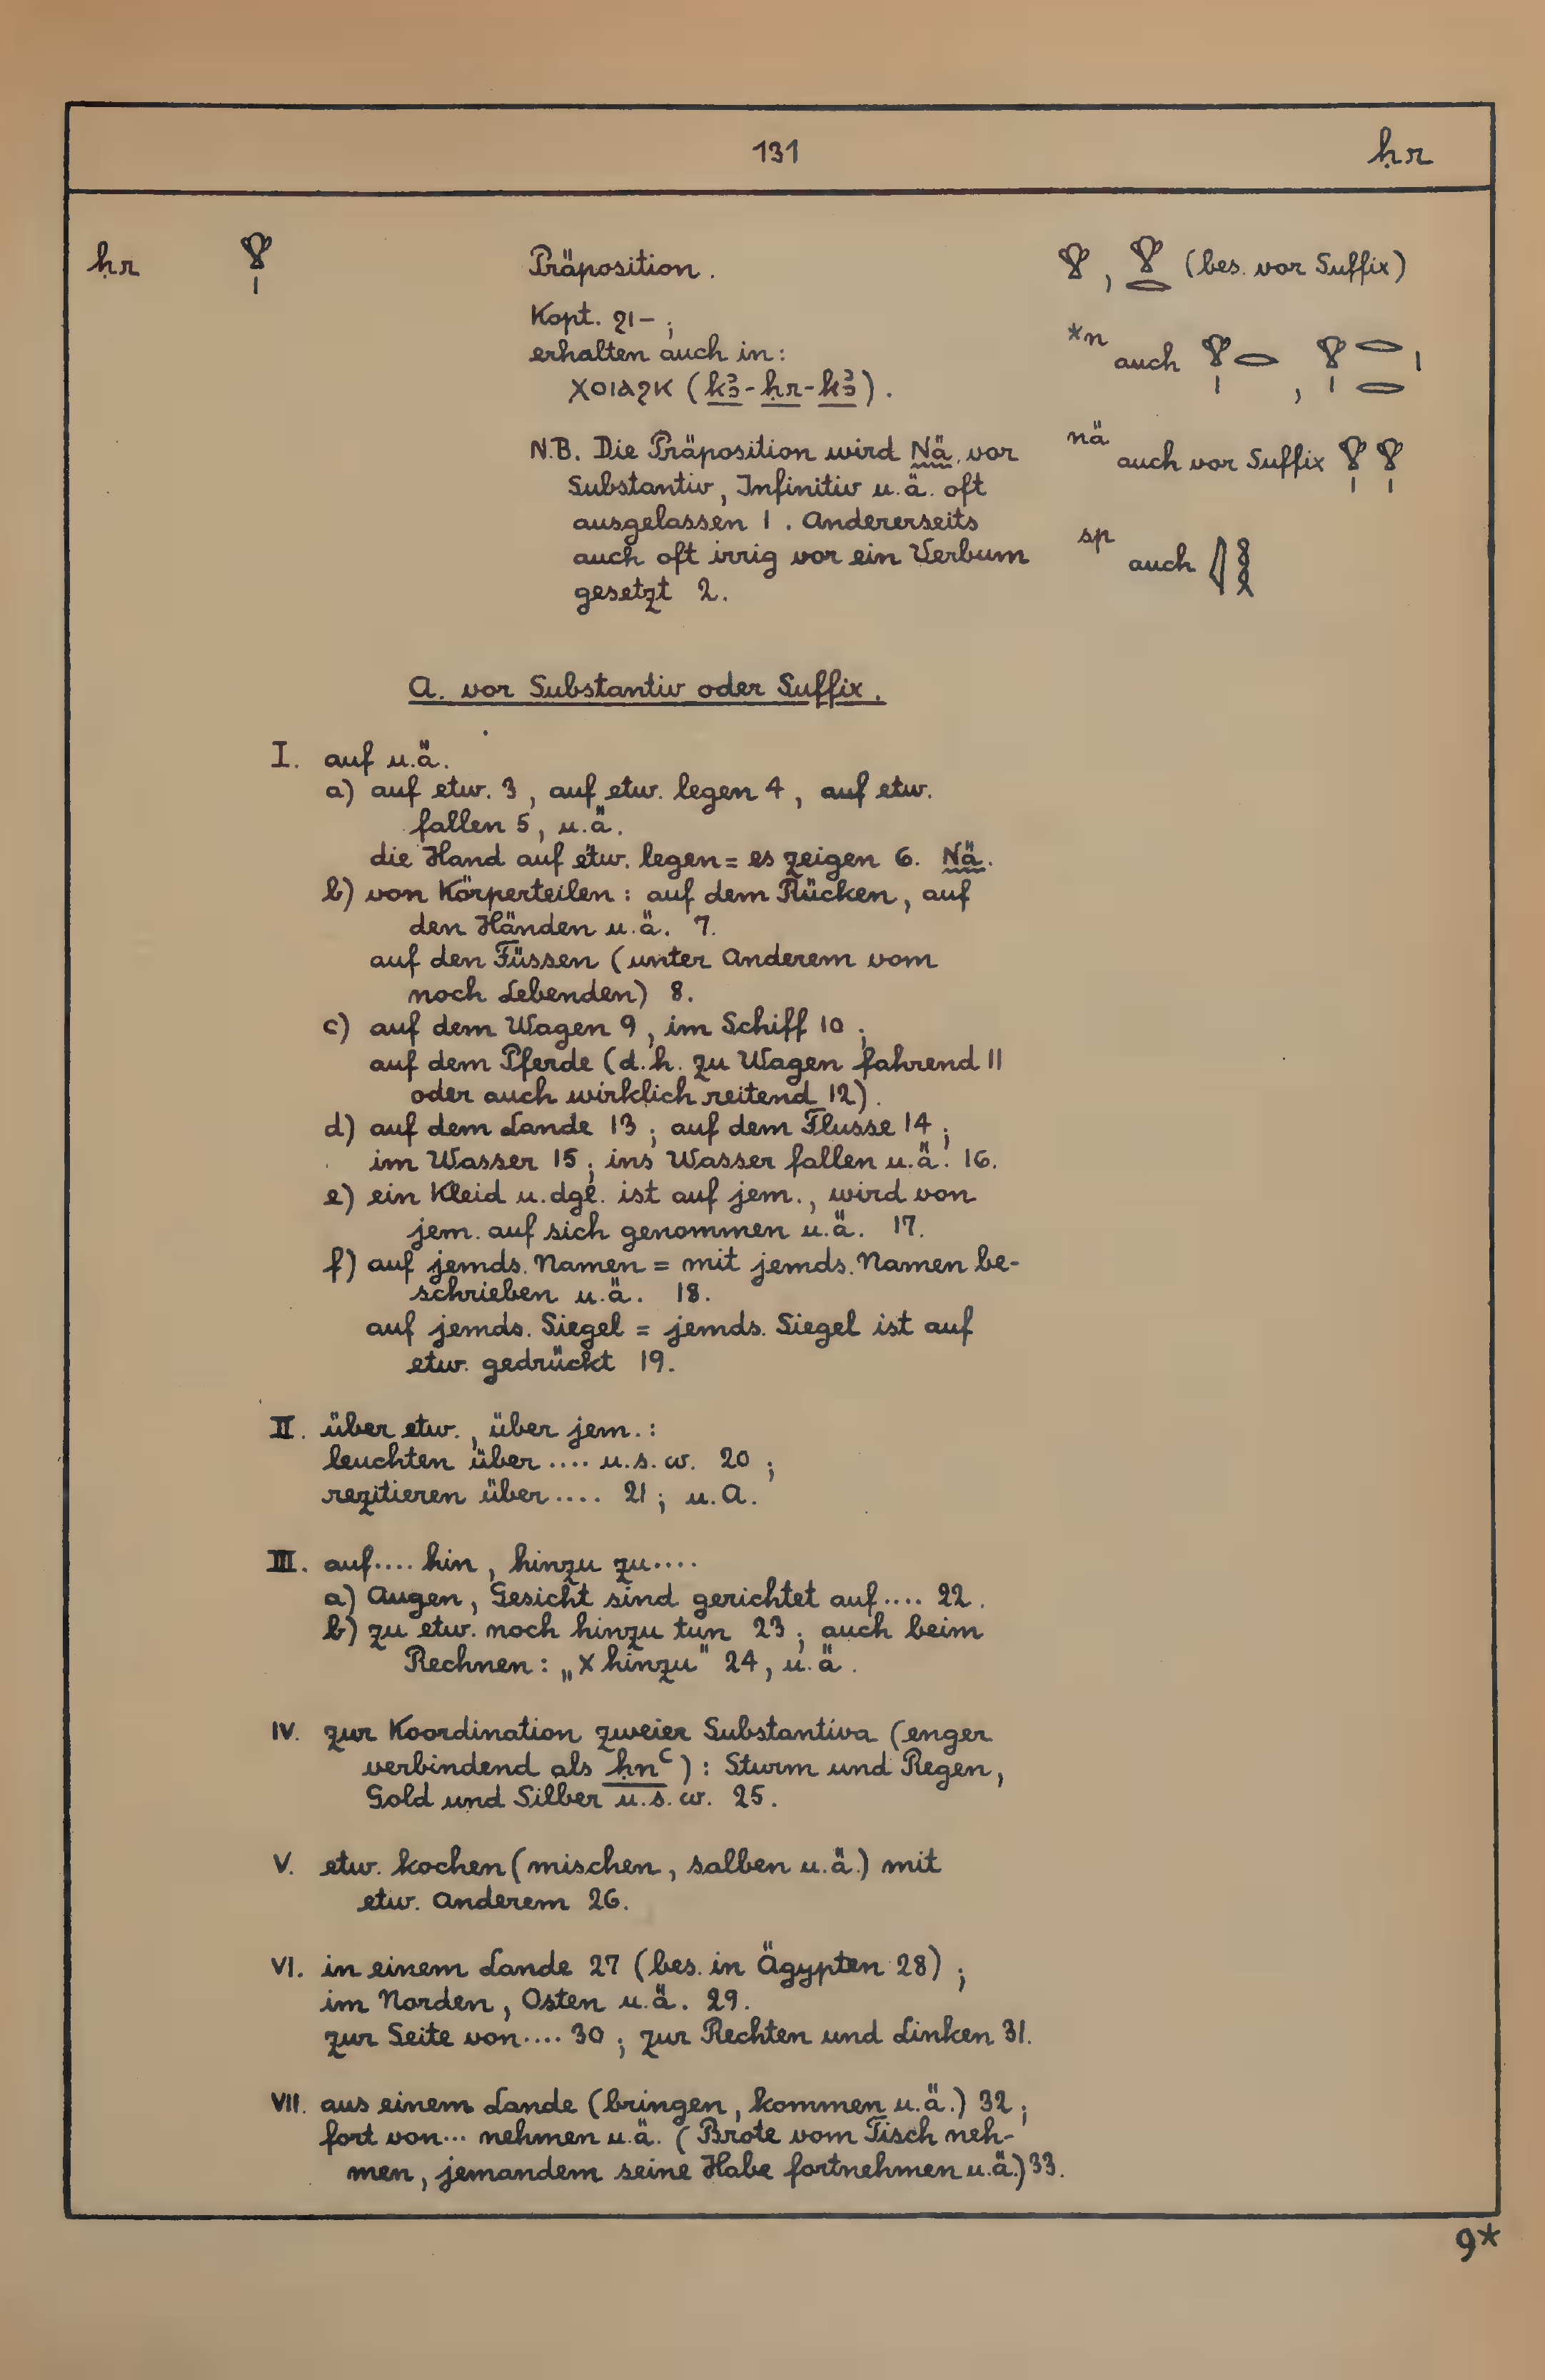 131
ḥr
ḥr 𓁷𓏤
Präposition.
Kopt. ϩⲓ-;
erhalten auch in:
ⲭⲟⲓⲁϩⲕ (kꜣ-ḥr-kꜣ).
N.B. Die Präposition wird Nä. vor
Substantiv, Infinitiv u.ä. oft
ausgelassen 1. Andererseits
auch oft irrig vor ein Verbum
gesetzt 2.
𓁷, 𓁷𓂋 (bes. vor Suffix)
*n auch 𓁷𓏤𓂋, 𓁷𓏤𓂋𓂋𓏤
nä auch vor Suffix 𓁷𓏤𓁷𓏤
sp auch
A. vor Substantiv oder Suffix.
I. auf u.ä.
a) auf etw. 3, auf etw. legen 4, auf etw.
fallen 5, u.ä.
die Hand auf etw. legen = es zeigen 6. Nä.
b) von Körperteilen: auf dem Rücken, auf
den Händen u.ä. 7.
auf den Füssen (unter Anderem vom
noch Lebenden) 8.
c) auf dem Wagen 9, im Schiff 10;
auf dem Pferde (d.h. zu Wagen fahrend 11
oder auch wirklich reitend 12).
d) auf dem Lande 13; auf dem Flusse 14;
im Wasser 15; ins Wasser fallen u.ä. 16.
e) ein Kleid u.dgl. ist auf jem., wird von
jem. auf sich genommen u.ä. 17.
f) auf jemds. Namen = mit jemds. Namen be-
schrieben u.ä. 18.
auf jemds. Siegel = jemds. Siegel ist auf
etw. gedrückt 19.
II. über etw., über jem.:
leuchten über .... u.s.w. 20;
rezitieren über .... 21; u.A.
III. auf .... hin, hinzu zu ....
a) Augen, Gesicht sind gerichtet auf .... 22.
b) zu etw. noch hinzu tun 23; auch beim
Rechnen: „x hinzu" 24, u.ä.
IV. zur Koordination zweier Substantiva (enger
verbindend als ḥnꜥ): Sturm und Regen,
Gold und Silber u.s.w. 25.
V. etw. kochen (mischen, salben u.ä.) mit
etw. Anderem 26.
VI. in einem Lande 27 (bes. in Ägypten 28);
im Norden, Osten u.ä. 29.
zur Seite von .... 30; zur Rechten und Linken 31.
VII. aus einem Lande (bringen, kommen u.ä.) 32;
fort von ... nehmen u.ä. (Brote vom Tisch neh-
men, jemandem seine Habe fortnehmen u.ä.) 33.
9*